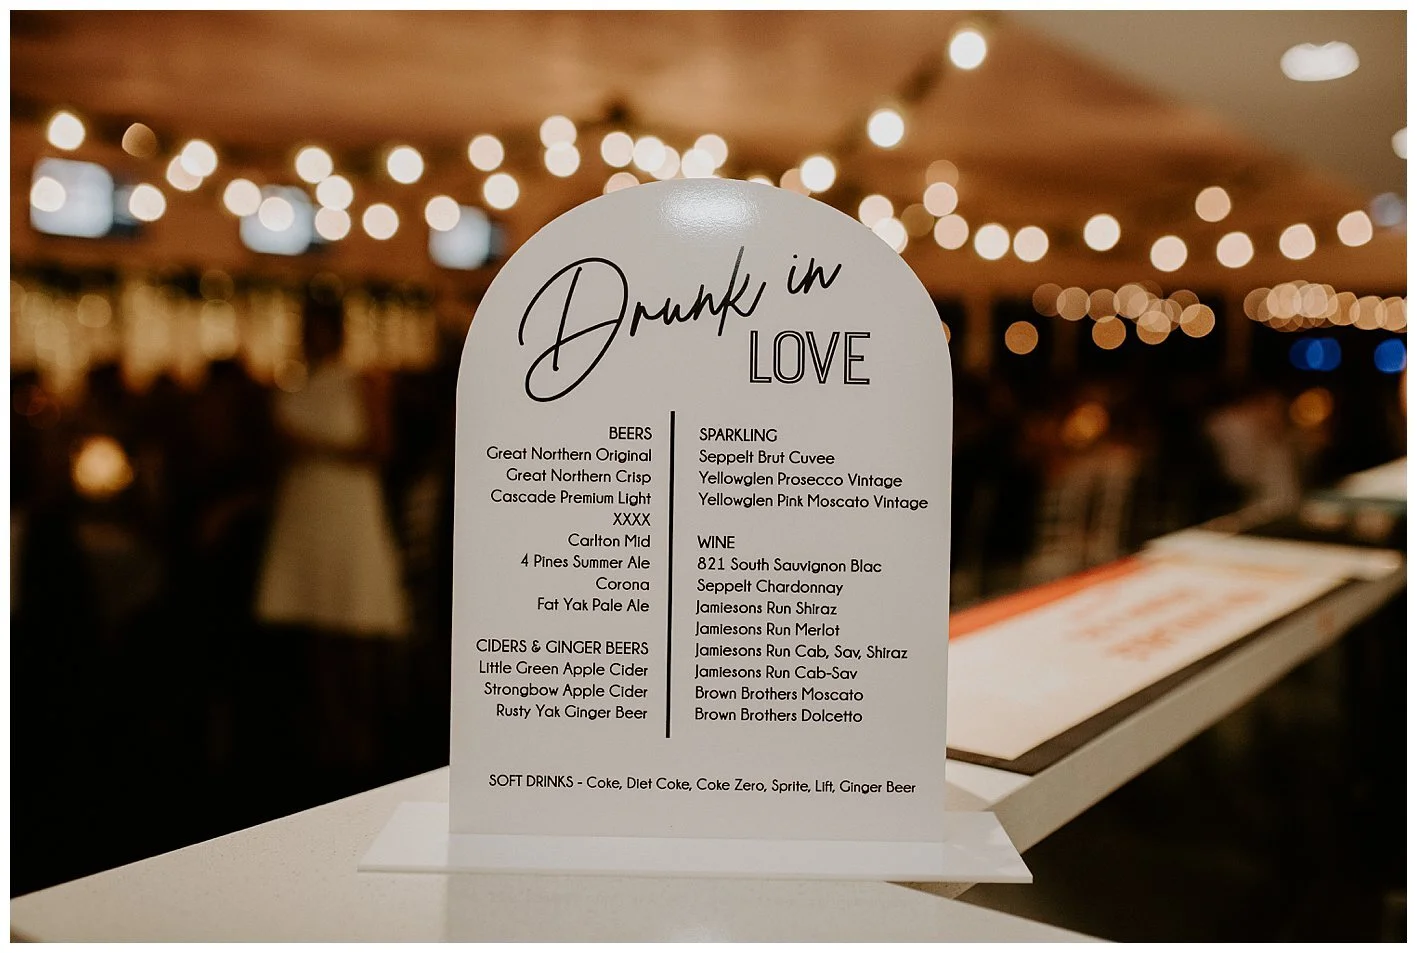 Drunk in
LOVE
BEERS
Great Northern Original
Great Northern Crisp
Cascade Premium Light
XXXX
Carlton Mid
4 Pines Summer Ale
Corona
Fat Yak Pale Ale
CIDERS & GINGER BEERS
Little Green Apple Cider
Strongbow Apple Cider
Rusty Yak Ginger Beer
SPARKLING
Seppelt Brut Cuvee
Yellowglen Prosecco Vintage
Yellowglen Pink Moscato Vintage
WINE
821 South Sauvignon Blac
Seppelt Chardonnay
Jamiesons Run Shiraz
Jamiesons Run Merlot
Jamiesons Run Cab, Sav, Shiraz
Jamiesons Run Cab-Sav
Brown Brothers Moscato
Brown Brothers Dolcetto
SOFT DRINKS - Coke, Diet Coke, Coke Zero, Sprite, Lift, Ginger Beer